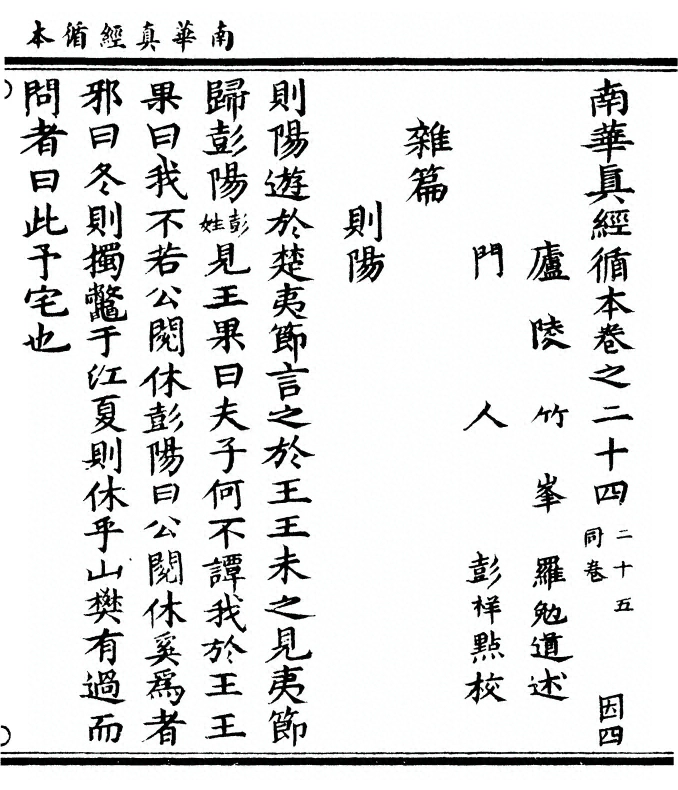 本循經真華南
南華真經循本卷之二十四 二十五同卷 因四
廬陵竹峯羅勉道述
門人彭祥點校
雜篇
則陽
則陽遊於楚夷節言之於王王未之見夷節
歸彭陽彭姓見王果曰夫子何不譚我於王王
果曰我不若公閱休彭陽曰公閱休奚爲者
邪曰冬則擉鼈于江夏則休乎山樊有過而
問者曰此予宅也